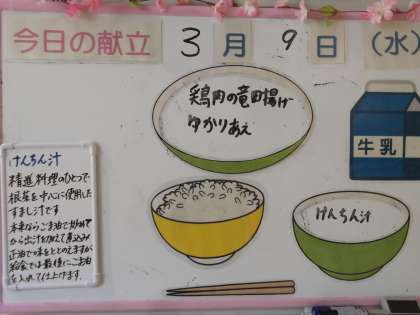 今日の献立 3月9日(水)
鶏肉の竜田揚げ
ゆかりあえ
牛乳
けんちん汁
けんちん汁
精進料理のひとつで
根菜を中心に使用した
すまし汁です
本来ならごま油で炒めて
から出汁を加えて煮込み
正油で味をととのえますが
給食では最後にごま油
を入れて仕上げます。